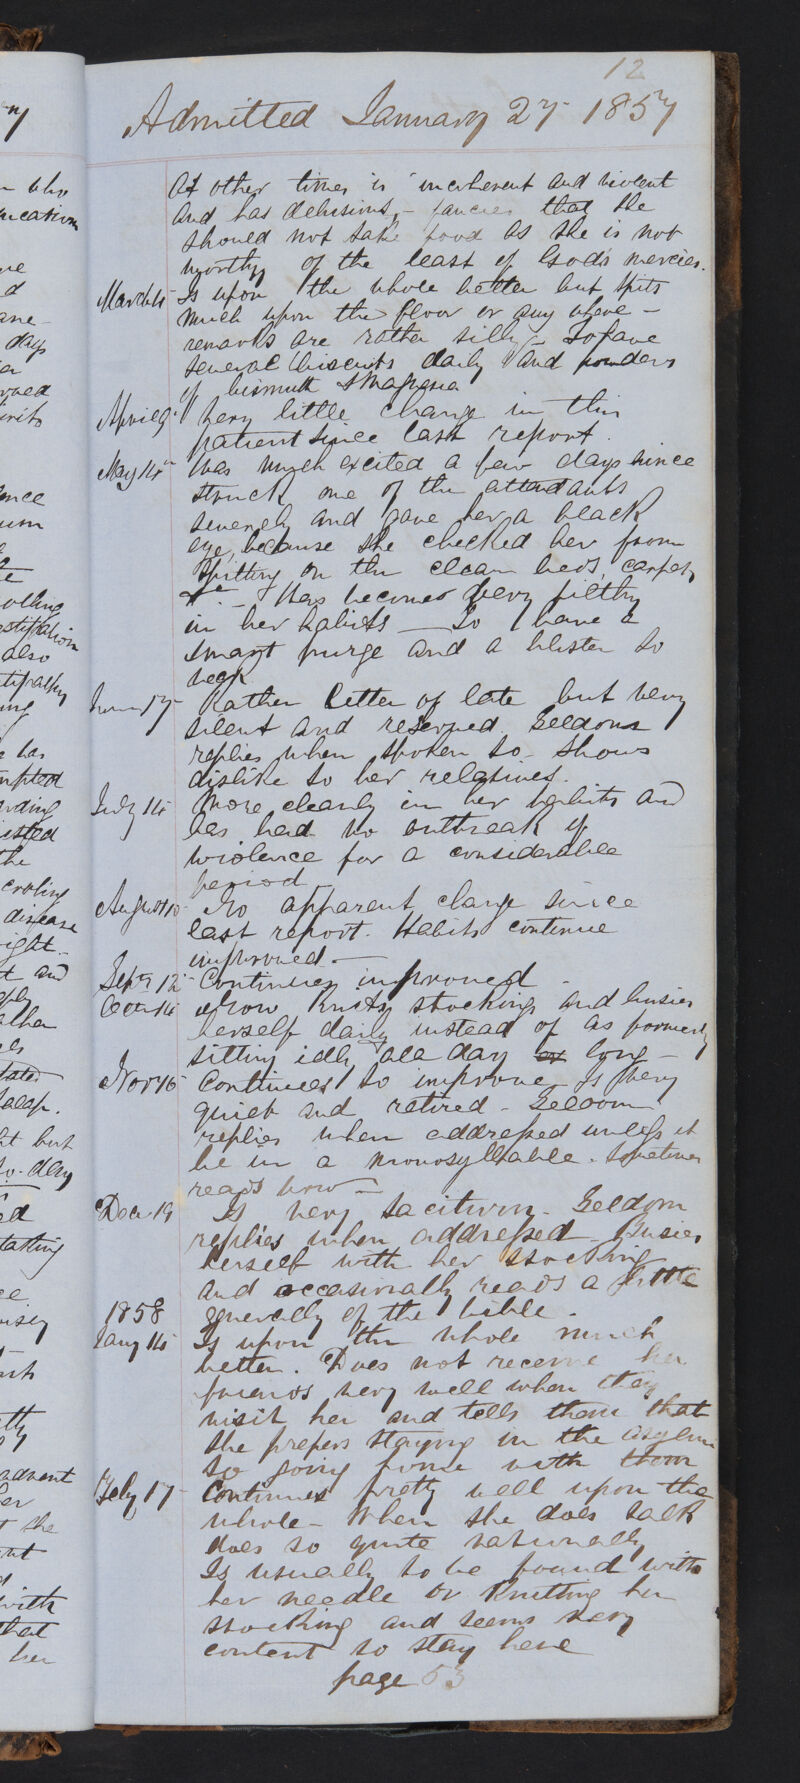 12
Admitted January 27 1857
At other times is incoherent and violent
and has delusions, - fancies that she
should not take food as she is not
worthy of the least of God's mercies.
March 14 Is upon the whole better but spits
much upon the floor or any where -
remarks are rather silly - To have
several biscuits daily and powders
of bismuth & Magnesia
April 9 Very little change in this
patient since last report.
May 14th Was much excited a few days since
struck one of the attendants
severely and gave her a black
eye, because she checked her from
spitting on the clean beds, carpets
&c - Has become very filthy
in her habits - To have a
smart purge and a blister to
neck
June 17 Rather better of late but very
silent and reserved. Seldom
replies when spoken to - shows
dislike to her relatives.
July 14 More cleanly in her habits and
has had no outbreak of
violence for a considerable
period
August 10 No apparent change since
last report. Habits continue
improved -
Septr 12 Continues improved -
Octr 14 Now knits stockings and busies
herself daily instead of as formerly
sitting idly all day long -
Nov 16 Continues to improve Is very
quiet and retired - Seldom
replies when addressed unless it
be in a monosyllable. Sometimes
reads now -
Decr 19 Is very taciturn - Seldom
replies when addressed - Busies
herself with her stocking
and occasionally reads a little
1858 generally of the bible.
Jany 14 Is upon the whole much
better. Does not receive her
friends very well when they
visit her and tells them that
she prefers staying in the asylum
to going home with them
Feby 17 Continues pretty well upon the
whole - When she does talk
does so quite rationally
Is usually to be found with
her needle or Knitting her
stocking and seems very
content to stay here
page 53